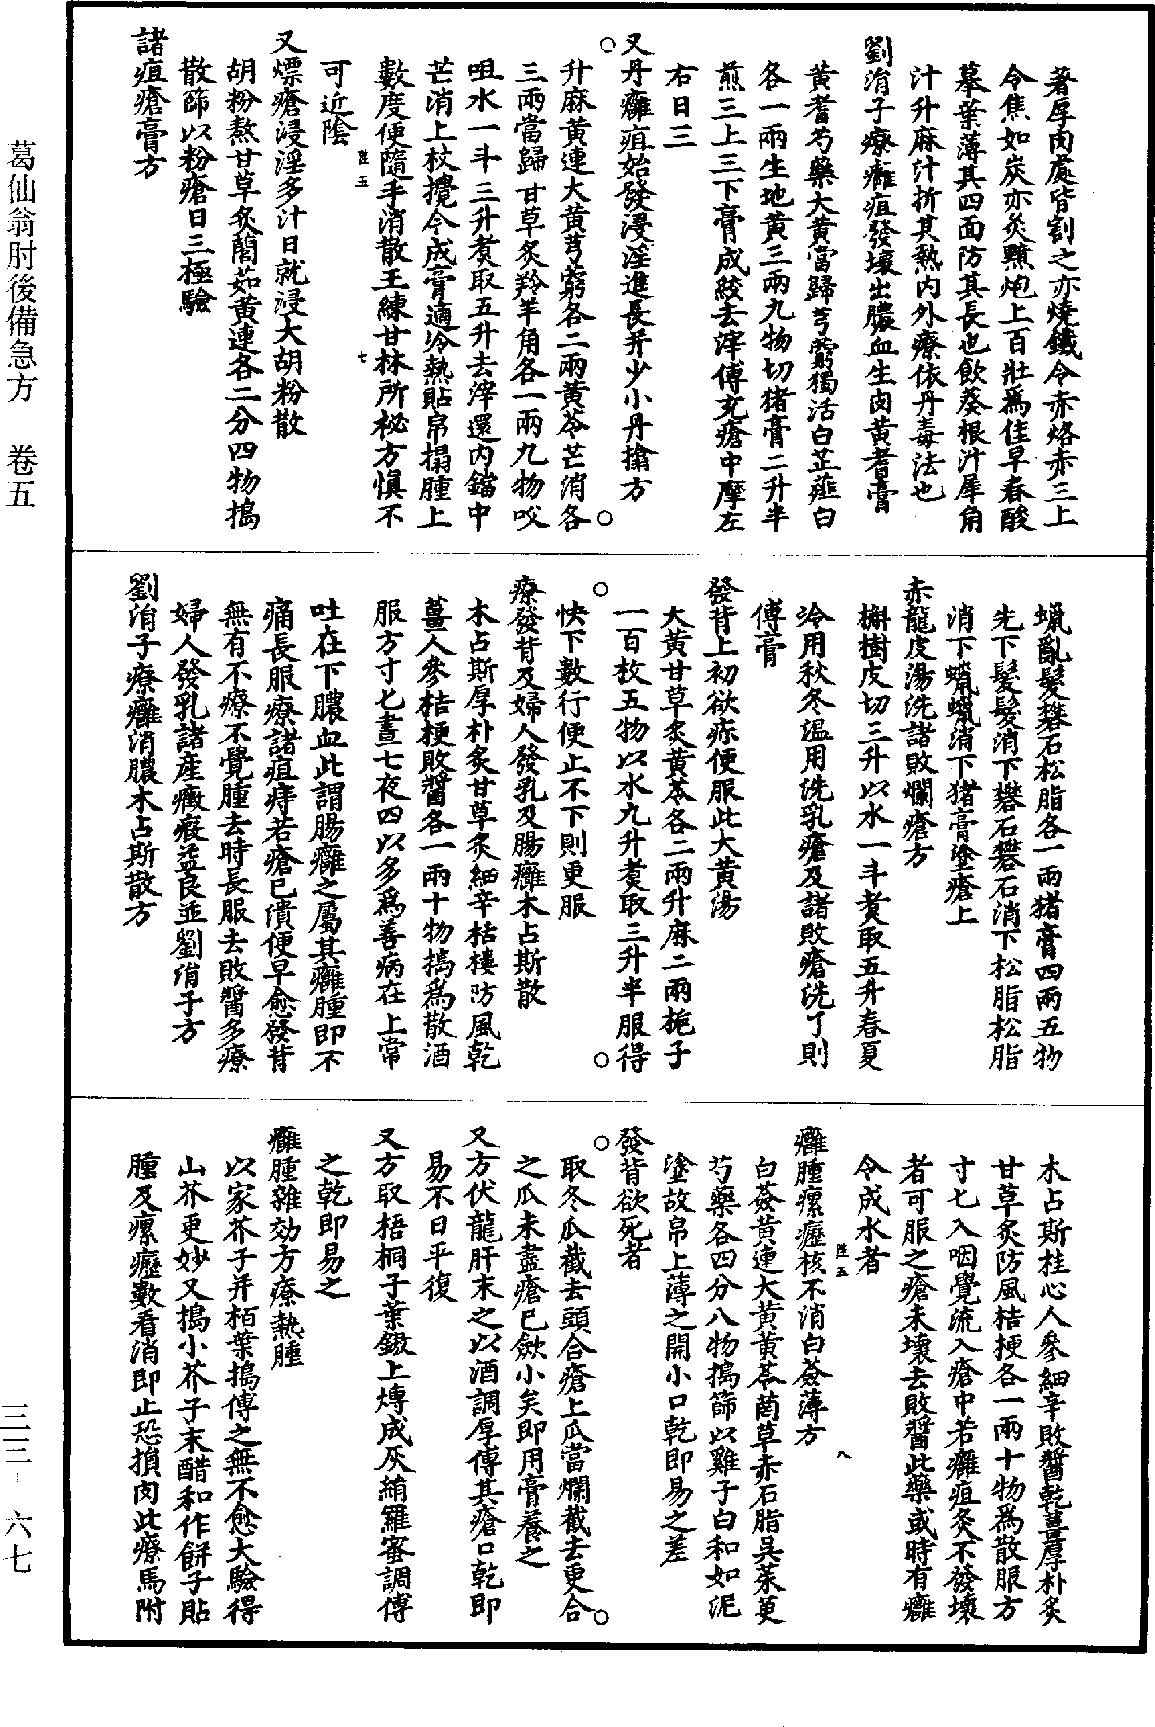 著厚肉處皆割之亦燒鐵令赤烙赤三上
令焦如炭亦灸黶炮上百壯爲佳早春酸
摹葉薄其四面防其長也飲葵根汁犀角
汁升麻汁折其熱內外療依丹毒法也
劉涓子療癰疽發壞出膿血生肉黃耆膏
黃耆芍藥大黃當歸芎藭獨活白芷薤白
各一兩生地黃三兩九物切猪膏二升半
煎三上三下膏成絞去滓傅充瘡中摩左
右日三
又丹癰疽始發浸淫進長并少小丹搶方
升麻黃連大黃芎藭各二兩黃芩芒消各
三兩當歸甘草炙羚羊角各一兩九物㕮
咀水一斗三升煮取五升去滓還內鐺中
芒消上杖攪令成膏適冷熱貼帛搨腫上
數度便隨手消散王練甘林所秘方慎不
可近陰
陸五
七
又熛瘡浸淫多汁日就浸大胡粉散
胡粉熬甘草炙䕡茹黃連各二分四物搗
散篩以粉瘡日三極驗
諸疽瘡膏方
蠟亂髮礬石松脂各一兩猪膏四兩五物
先下髮髮消下礬石礬石消下松脂松脂
消下蠟蠟消下猪膏塗瘡上
赤龍皮湯洗諸敗爛瘡方
槲樹皮切三升以水一斗煮取五升春夏
冷用秋冬溫用洗乳瘡及諸敗瘡洗了則
傅膏
發背上初欲疹便服此大黃湯
大黃甘草炙黃芩各二兩升麻二兩梔子
一百枚五物以水九升煮取三升半服得
快下數行便止不下則更服
療發背及婦人發乳及腸癰木占斯散
木占斯厚朴炙甘草炙細辛栝樓防風乾
薑人參桔梗敗醬各一兩十物搗爲散酒
服方寸匕晝七夜四以多爲善病在上常
吐在下膿血此謂腸癰之屬其癰腫即不
痛長服療諸疽痔若瘡已潰便早愈發背
無有不療不覺腫去時長服去敗醬多療
婦人發乳諸產癥瘕益良並劉涓子方
劉涓子療癰消膿木占斯散方
木占斯桂心人參細辛敗醬乾薑厚朴炙
甘草炙防風桔梗各一兩十物爲散服方
寸匕入咽覺流入瘡中若癰疽灸不發壞
者可服之瘡未壞去敗醬此藥或時有癰
令成水者
陸五
八
癰腫瘰癧核不消白薟薄方
白薟黃連大黃黃芩䓪草赤石脂吳茱萸
芍藥各四分八物搗篩以雞子白和如泥
塗故帛上薄之開小口乾即易之差
發背欲死者
取冬瓜截去頭合瘡上瓜當爛截去更合
之瓜未盡瘡已斂小矣即用膏養之
又方伏龍肝末之以酒調厚傅其瘡口乾即
易不日平復
又方取梧桐子葉鏊上煿成灰絹羅蜜調傅
之乾即易之
癰腫雜効方療熱腫
以家芥子并栢葉搗傅之無不愈大驗得
山芥更妙又搗小芥子末醋和作餅子貼
腫及瘰癧數看消即止恐損肉此療馬附
葛仙翁肘後備急方 卷五
三三-六七